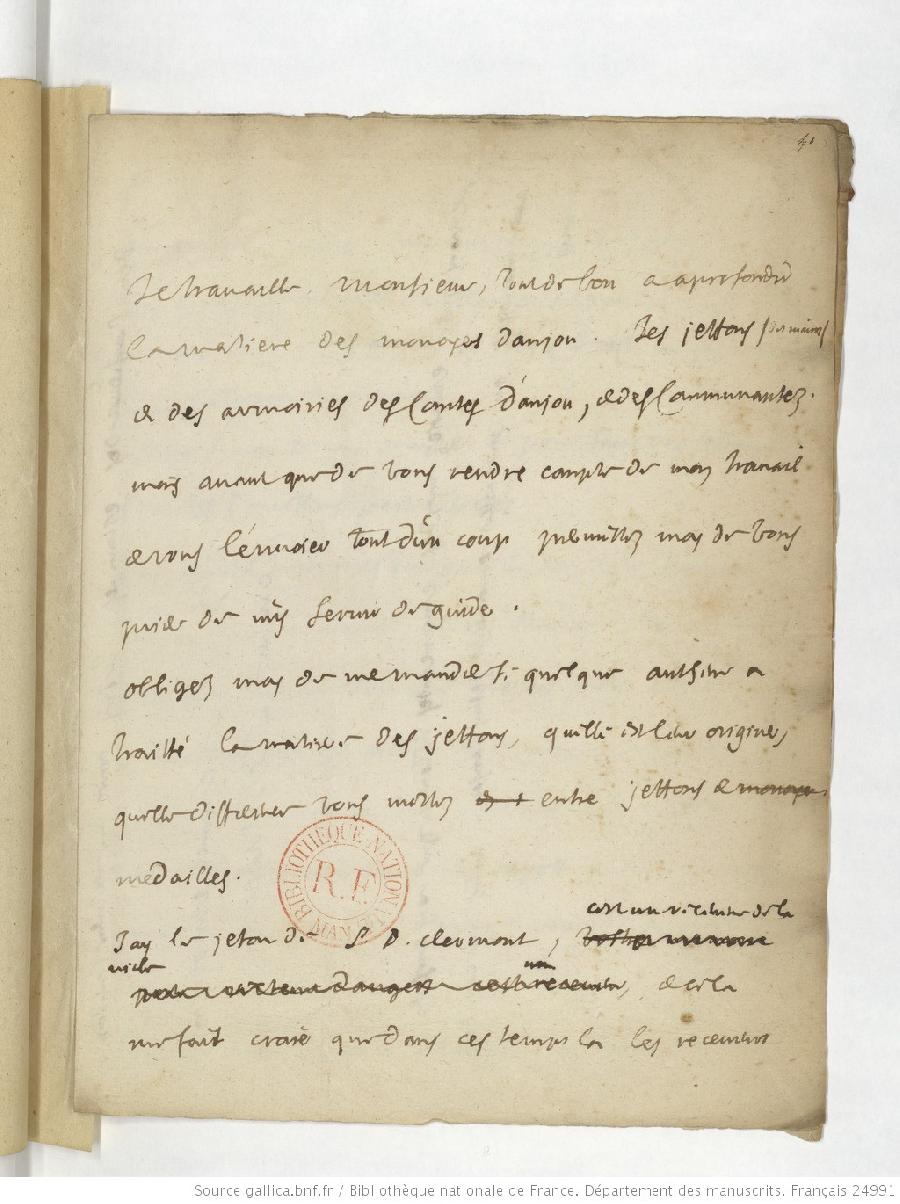 41
Je travaille, Monsieur, tout de bon a aprofondir
la matiere des monoyes danjou. les jettons
& des armoiries des Contes d'anjou, & des Communautez.
mais avant que de vous rendre compte de mon travail
& vous l'envoier tout d'un coup permittez moy de vous
prier de me servir de guide.
obligez moy de me mander si quelque autheur a
traitté la matiere des jettons, quelle est leur origine,
quelle difference vous mettez entre jettons & monoyes
medailles.
cest un receveur de la
Jay le jeton de P. D. clermont,
ville
un
receveur, & cela
me fait croire que dans ces temps la les receveurs
BIBLIOTHEQUE NATIONALE
R.F.
MAN
Source gallica.bnf.fr / Bibliothèque nationale de France. Département des manuscrits. Français 24991